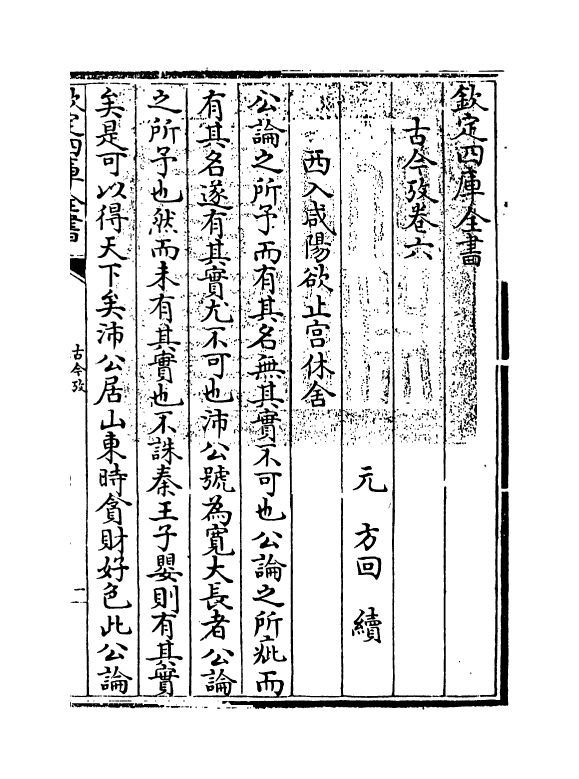 欽定四庫全書
古今攷卷六
元 方回 續
西入咸陽欲止宫休舍
公論之所予而有其名無其實不可也公論之所疵而
有其名遂有其實尤不可也沛公號為寛大長者公論
之所予也然而未有其實也不誅秦王子嬰則有其實
矣是可以得天下矣沛公居山東時貪財好色此公論
欽定四庫全書
古今攷